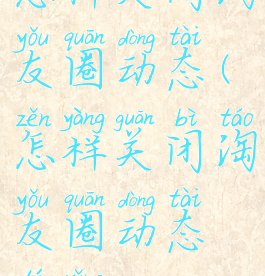 yǒu quān dòng tài
友圈动态(
zěn yàng guān bì táo
怎样关闭淘
yǒu quān dòng tài
友圈动态